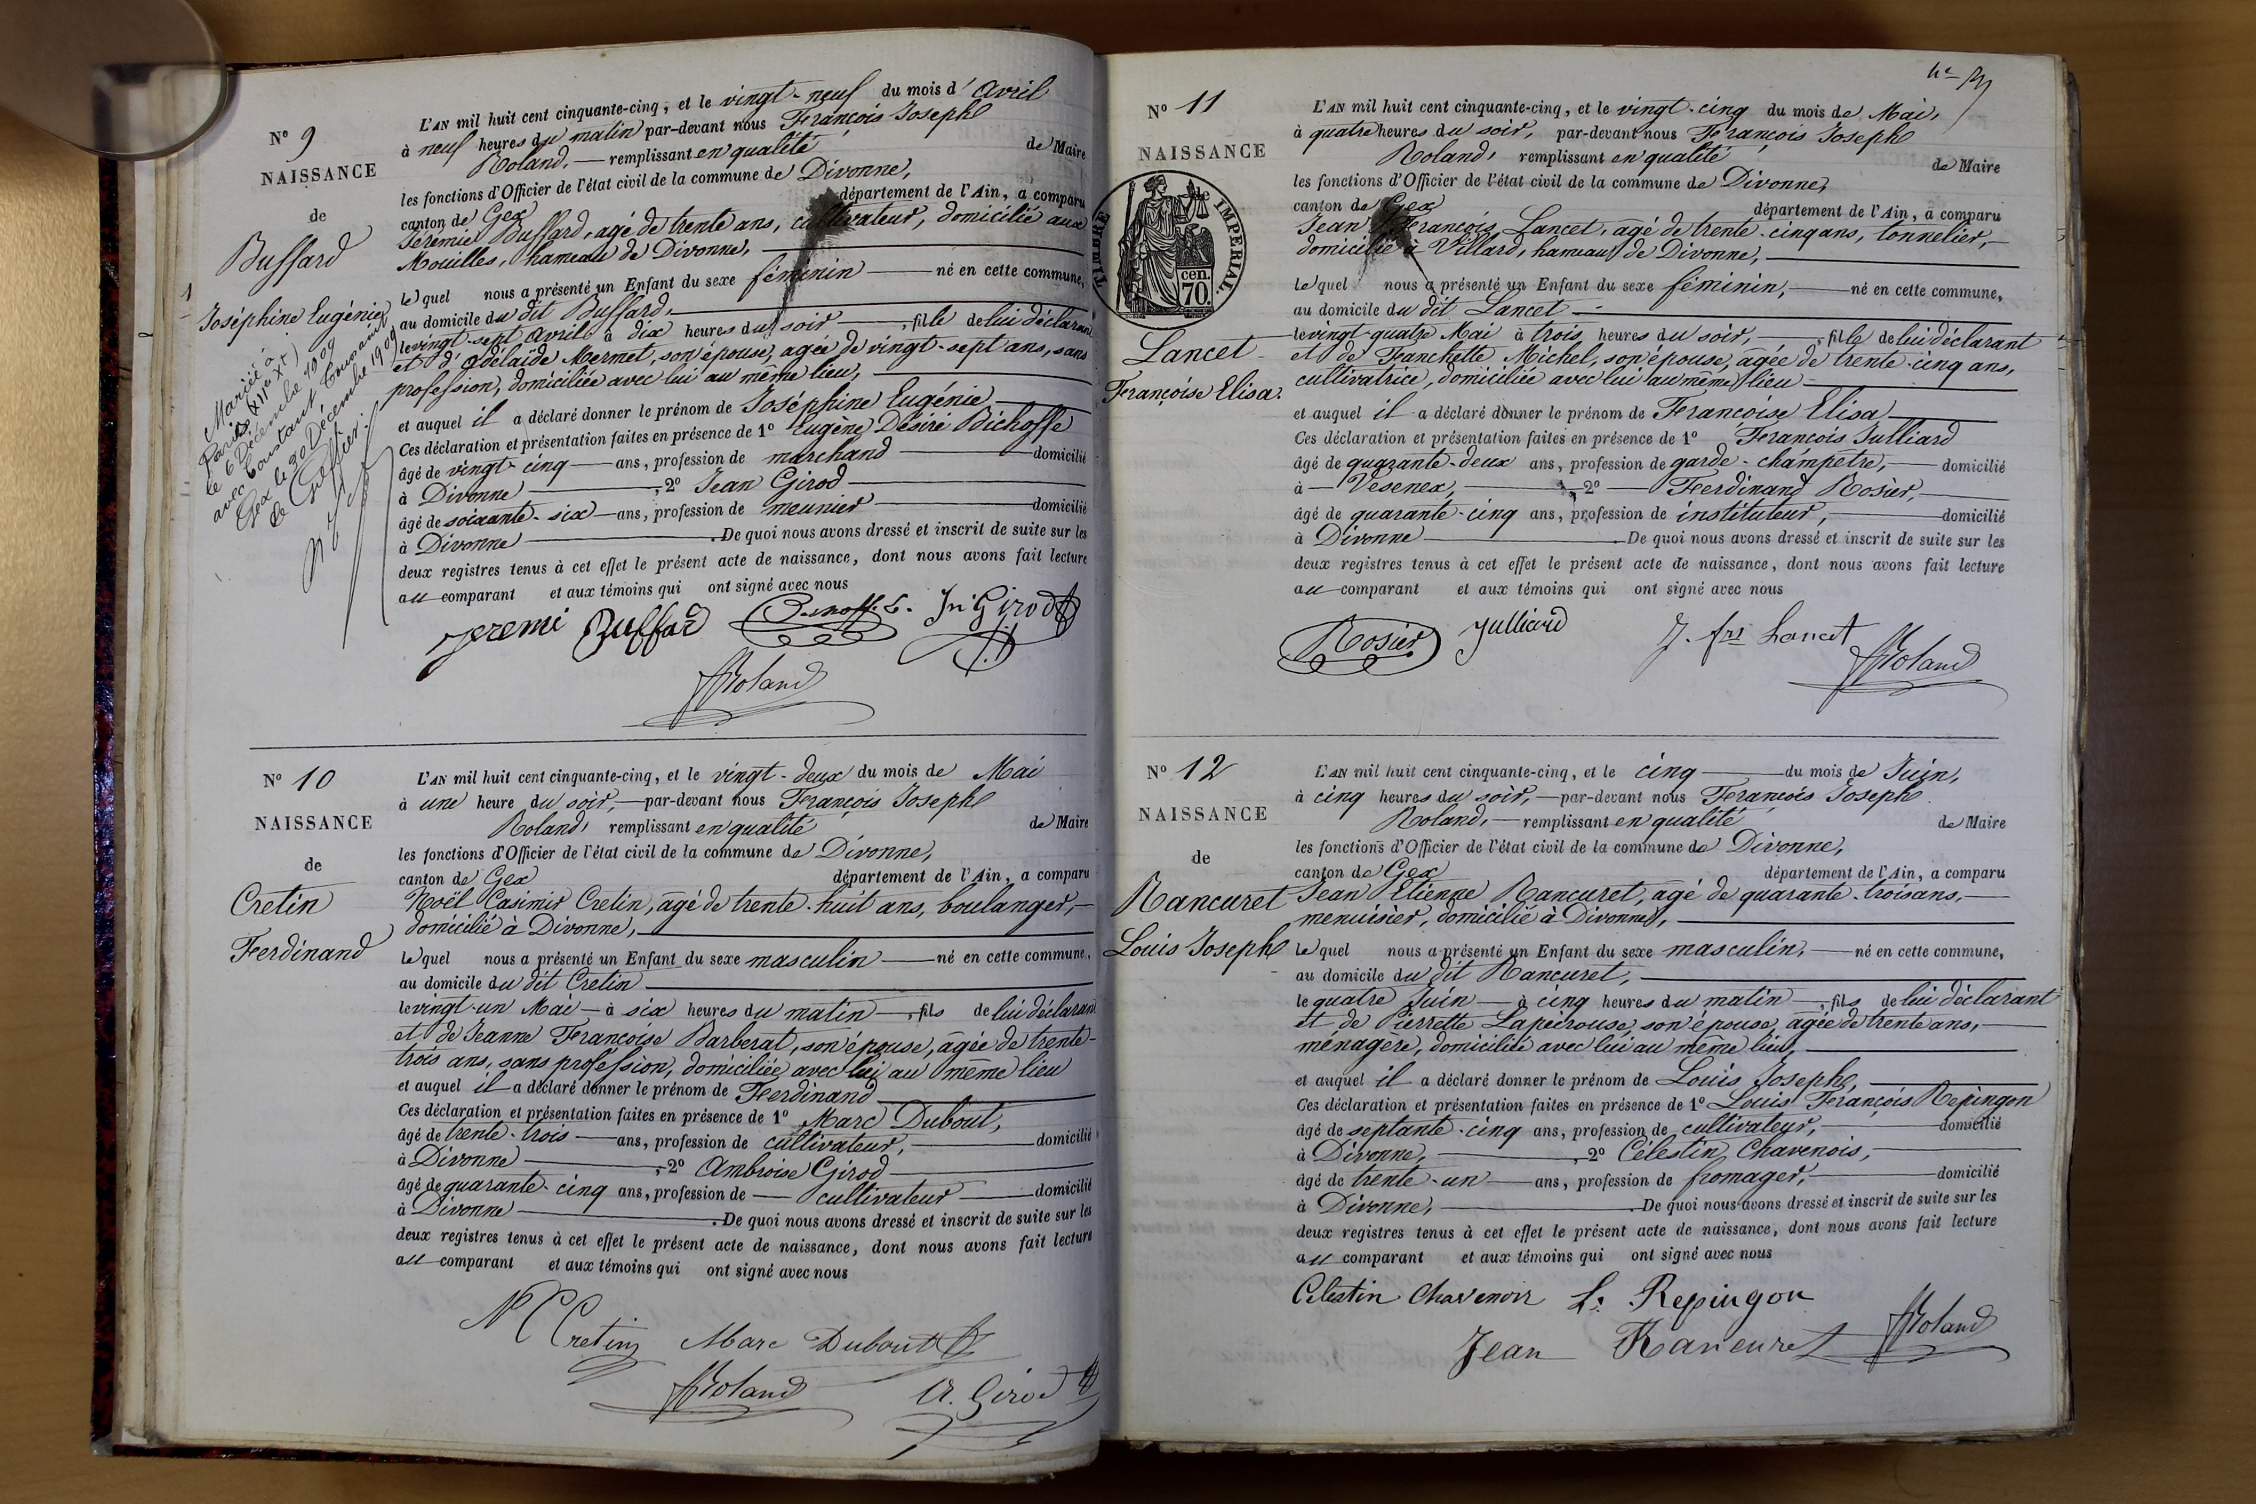 N° 9
NAISSANCE
de
Buffard
Joséphine Eugénie
Mariée à
Paris (XIIe Xt)
le 6 Décembre 1909
avec Constant
Gex le 20 Décembre 1909
Le Greffier
L'AN mil huit cent cinquante-cinq, et le vingt-neuf du mois d' Avril
à neuf heures du matin par-devant nous François Joseph
Roland, — remplissant en qualité de Maire
les fonctions d'Officier de l'état civil de la commune de Divonne,
canton de Gex département de l'Ain, a comparu
Jérémie Buffard, agé de trente ans, cultivateur, domicilié aux
Mouilles, hameau de Divonne,
lequel nous a présenté un Enfant du sexe féminin — né en cette commune,
au domicile du dit Buffard,
le vingt-sept Avril à dix heures du soir —, fille de lui déclarant
et d'Adélaïde Mermet, son épouse, agée de vingt-sept ans, sans
profession, domiciliée avec lui au même lieu,
et auquel il a déclaré donner le prénom de Joséphine Eugénie
Ces déclaration et présentation faites en présence de 1° Eugène Désiré Bichoffe
âgé de vingt-cinq — ans, profession de marchand — domicilié
à Divonne —, 2° Jean Girod
âgé de soixante-six — ans, profession de meunier — domicilié
à Divonne — . De quoi nous avons dressé et inscrit de suite sur les
deux registres tenus à cet effet le présent acte de naissance, dont nous avons fait lecture
au comparant et aux témoins qui ont signé avec nous
Jeremi Buffard Jn Girod
Roland
N° 10
NAISSANCE
de
Cretin
Ferdinand
L'AN mil huit cent cinquante-cinq, et le vingt-deux du mois de Mai
à une heure du soir, — par-devant nous François Joseph
Roland, remplissant en qualité de Maire
les fonctions d'Officier de l'état civil de la commune de Divonne,
canton de Gex département de l'Ain, a comparu
Noël Casimir Cretin, agé de trente-huit ans, boulanger, —
domicilié à Divonne,
lequel nous a présenté un Enfant du sexe masculin — né en cette commune,
au domicile du dit Cretin
le vingt-un Mai — à six heures du matin —, fils de lui déclarant
et de Jeanne Françoise Barberat, son épouse, agée de trente-
trois ans, sans profession, domiciliée avec lui au même lieu
et auquel il a déclaré donner le prénom de Ferdinand
Ces déclaration et présentation faites en présence de 1° Marc Dubout,
âgé de trente-trois — ans, profession de cultivateur, — domicilié
à Divonne —, 2° Ambroise Girod
âgé de quarante-cinq ans, profession de — cultivateur — domicilié
à Divonne — . De quoi nous avons dressé et inscrit de suite sur les
deux registres tenus à cet effet le présent acte de naissance, dont nous avons fait lecture
au comparant et aux témoins qui ont signé avec nous
N C Cretin Marc Dubout
Roland A. Girod
N° 11
NAISSANCE
de
TIMBRE IMPERIAL
70 cen.
Lancet
Françoise Elisa.
L'AN mil huit cent cinquante-cinq, et le vingt-cinq du mois de Mai,
à quatre heures du soir, par-devant nous François Joseph
Roland, remplissant en qualité de Maire
les fonctions d'Officier de l'état civil de la commune de Divonne,
canton de Gex département de l'Ain, a comparu
Jean François Lancet, agé de trente-cinq ans, tonnelier, —
domicilié à Villard, hameau de Divonne,
lequel nous a présenté un Enfant du sexe féminin, — né en cette commune,
au domicile du dit Lancet
le vingt-quatre Mai à trois heures du soir, —, fille de lui déclarant
et de Franchette Michel, son épouse, agée de trente-cinq ans,
cultivatrice, domiciliée avec lui au même lieu
et auquel il a déclaré donner le prénom de Françoise Elisa
Ces déclaration et présentation faites en présence de 1° François Julliard
âgé de quarante-deux ans, profession de garde-champêtre, — domicilié
à — Vesenex, —, 2° — Ferdinand Rosier,
âgé de quarante-cinq ans, profession de instituteur, — domicilié
à Divonne — . De quoi nous avons dressé et inscrit de suite sur les
deux registres tenus à cet effet le présent acte de naissance, dont nous avons fait lecture
au comparant et aux témoins qui ont signé avec nous
Rosier Julliard J. frs Lancet
Roland
N° 12
NAISSANCE
de
Rancuret
Louis Joseph
L'AN mil huit cent cinquante-cinq, et le cinq — du mois de Juin,
à cinq heures du soir, — par-devant nous François Joseph
Roland, — remplissant en qualité de Maire
les fonctions d'Officier de l'état civil de la commune de Divonne,
canton de Gex département de l'Ain, a comparu
Jean Etienne Rancuret, agé de quarante-trois ans, —
menuisier, domicilié à Divonne,
lequel nous a présenté un Enfant du sexe masculin, — né en cette commune,
au domicile du dit Rancuret,
le quatre Juin — à cinq heures du matin —, fils de lui déclarant
et de Pierrette Lapeirouse, son épouse, agée de trente ans, —
ménagère, domiciliée avec lui au même lieu,
et auquel il a déclaré donner le prénom de Louis Joseph,
Ces déclaration et présentation faites en présence de 1° Louis François Repingon
âgé de septante-cinq ans, profession de cultivateur, — domicilié
à Divonne, —, 2° Célestin Chavenois,
âgé de trente-un — ans, profession de fromager, — domicilié
à Divonne, — . De quoi nous avons dressé et inscrit de suite sur les
deux registres tenus à cet effet le présent acte de naissance, dont nous avons fait lecture
au comparant et aux témoins qui ont signé avec nous
Celestin Chavenoir L. Repingon
Jean Rancuret Roland